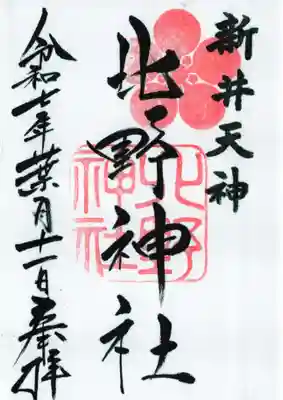 新井天神
北野神社
令和七年葉月十一日奉拝
北野
神社